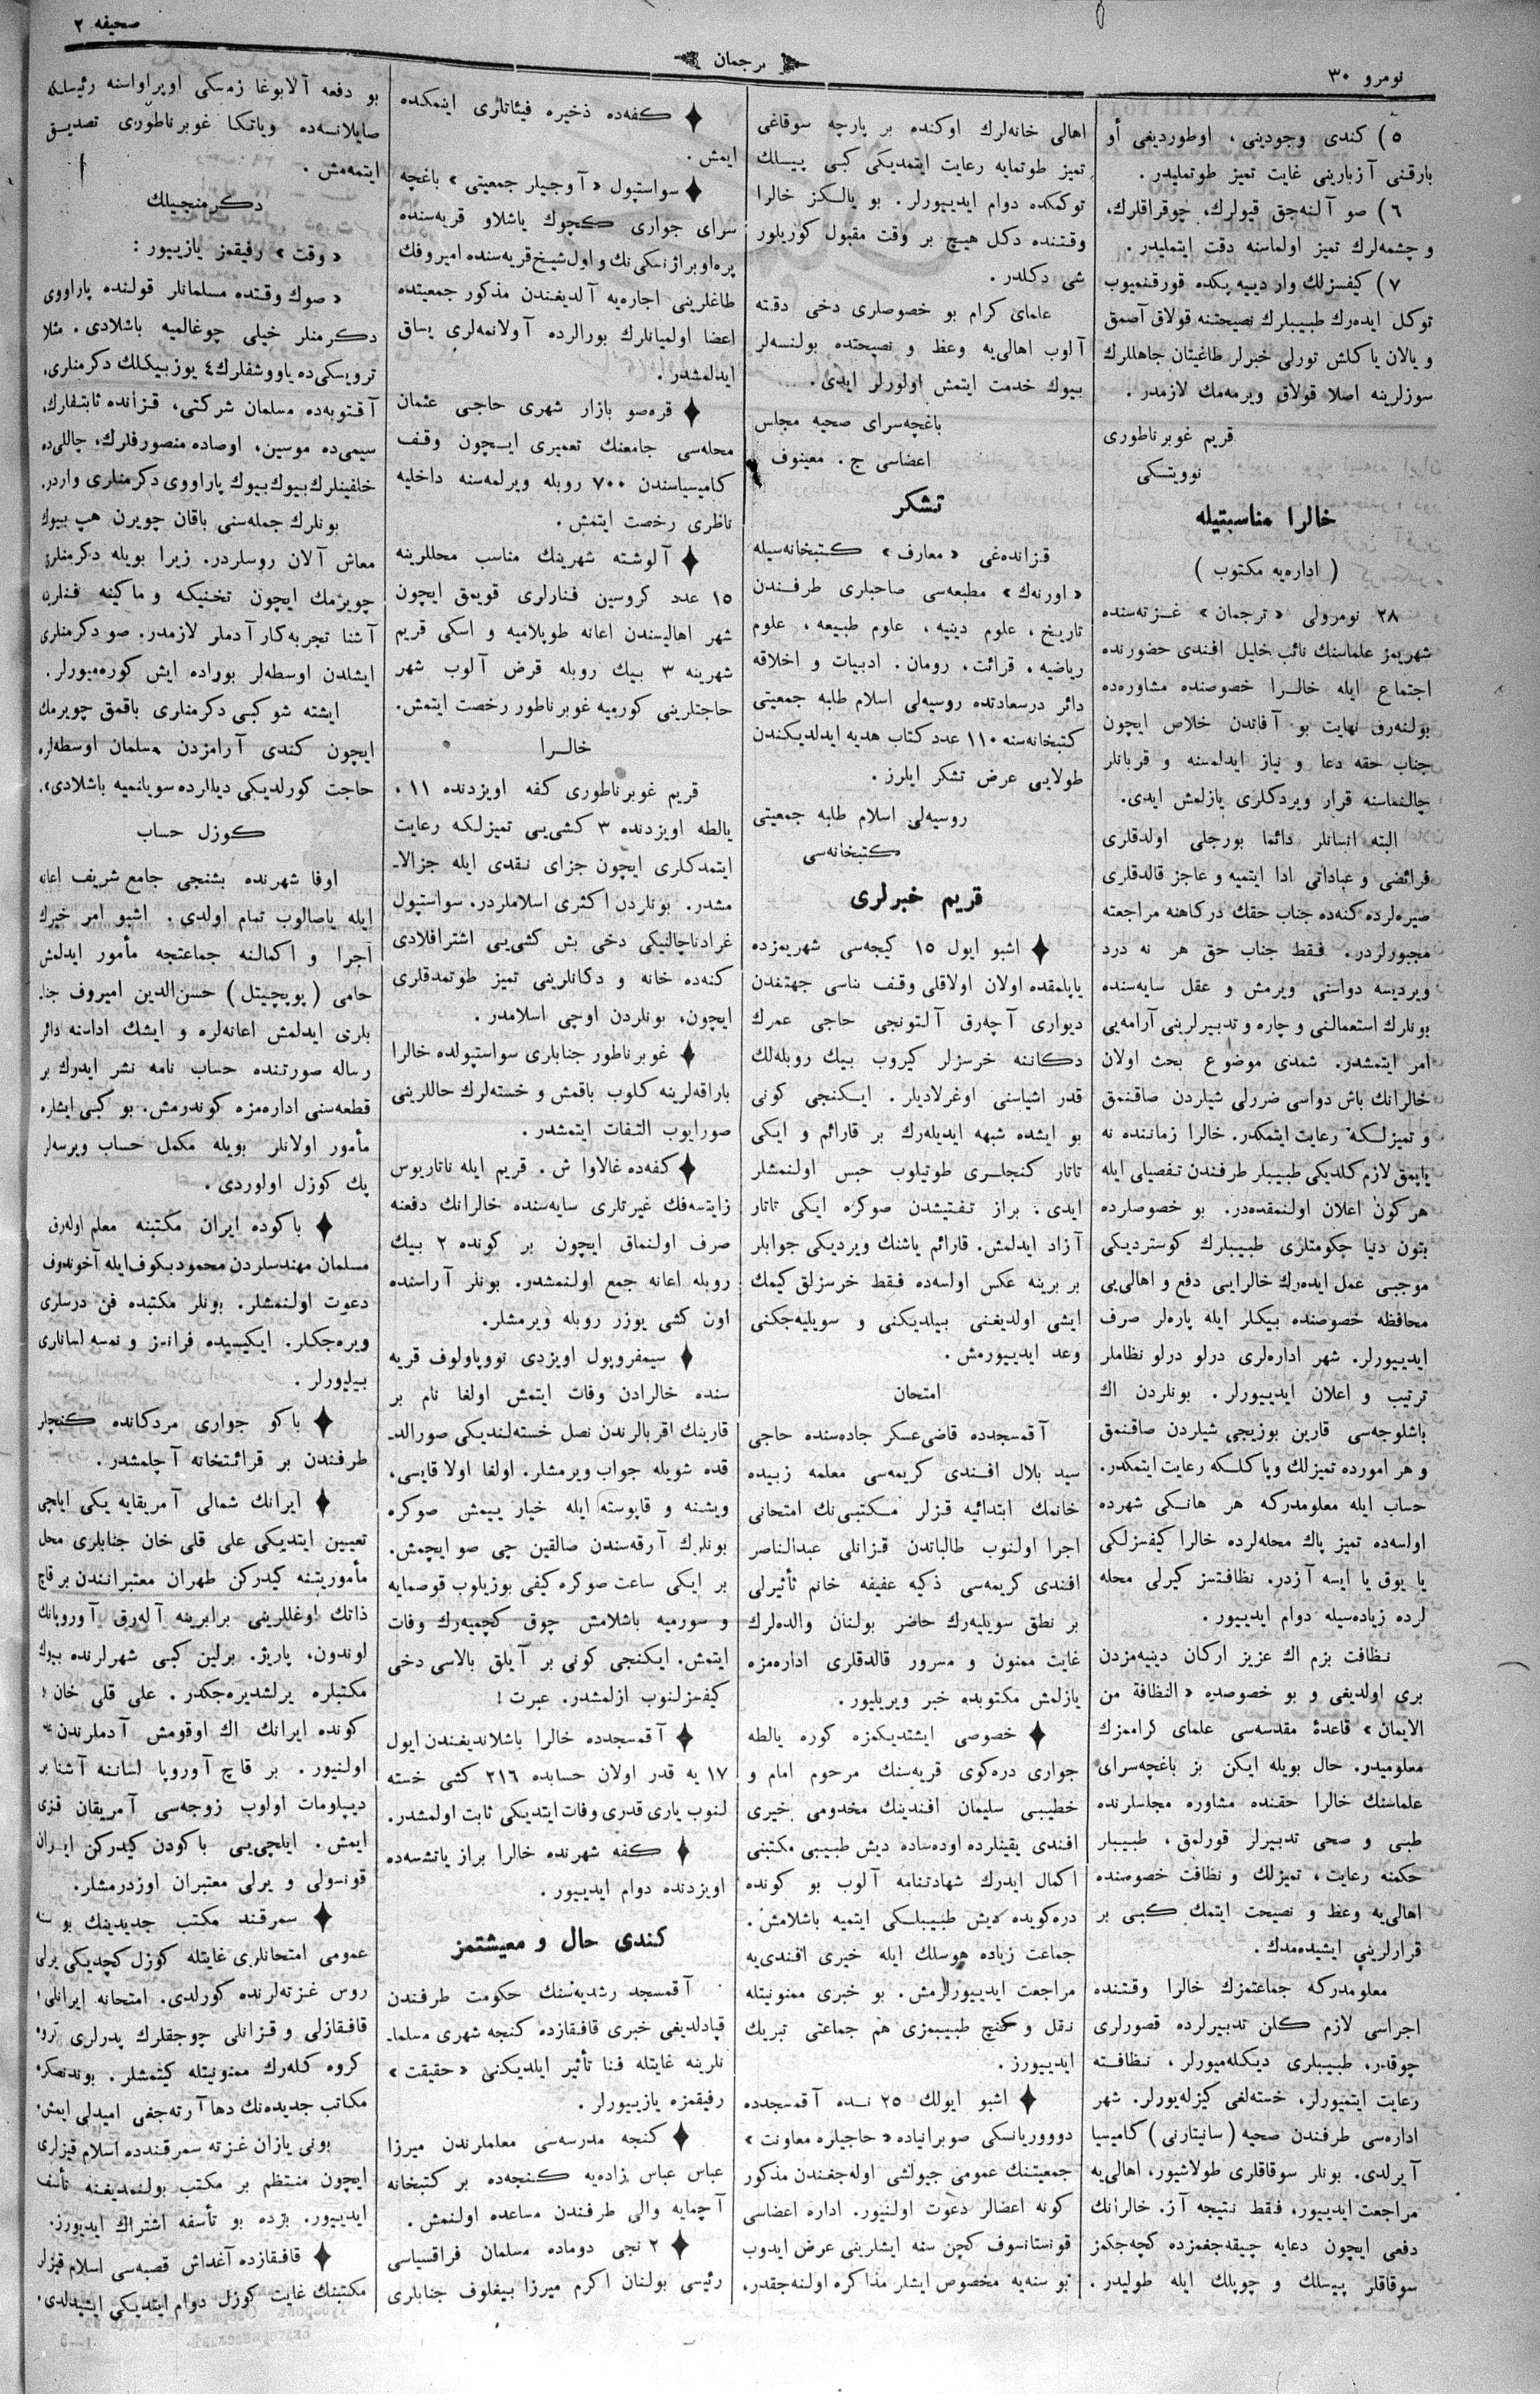 نومرو ٣٠
ترجمان
صحيفه ٢
٥) كندى وجودينى، اوطورديغى أو
بارقنى آزبارينى غايت تميز طوتمليدر.
٦) صو آلنه‌جق قيولرك، چوقراقلرك،
و چشمه‌لرك تميز اولماسنه دقت ايتمليدر.
٧) كيفسزلك وار دييه پكده قورقنميوب
توكل ايده‌رك طبيبلرك نصيحتنه قولاق آصمق
و يالان ياكلش تورلى خبرلر طاغيتان جاهللرك
سوزلرينه اصلا قولاق ويرمه‌مك لازمدر.
قريم غوبرناطورى
نوويتسكى
خالرا مناسبتيله
( اداره‌يه مكتوب )
٢٨ نومرولى « ترجمان » غزته‌سنده
شهريمز علماسنك نائب خليل افندى حضورنده
اجتماع ايله خالرا خصوصنده مشاوره‌ده
بولنه‌رق نهايت بو آفاتدن خلاص ايچون
جناب حقه دعا و نياز ايدلمسنه و قربانلر
چالنماسنه قرار ويردكلرى يازلمش ايدى.
البته انسانلر دائما بورجلى اولدقلرى
فرائضى و عباداتى ادا ايتميه و عاجز قالدقلرى
صيره‌لرده كنه‌ده جناب حقك دركاهنه مراجعته
مجبورلردر. فقط جناب حق هر نه درد
ويرديسه دواسنى ويرمش و عقل سايه‌سنده
بونلرك استعمالنى و چاره و تدبيرلرينى آرامه‌يى
امر ايتمشدر. شمدى موضوع بحث اولان
خالرانك باش دواسى ضررلى شيلردن صاقنمق
و تميزلكه رعايت ايتمكدر. خالرا زماننده نه
ياپمق لازم كلديكى طبيبلر طرفندن تفصيلى ايله
هركون اعلان اولنمقده‌در. بو خصوصلرده
بتون دنيا حكومتلرى طبيبلرك كوسترديكى
موجبى عمل ايده‌رك خالرايى دفع و اهالى‌يى
محافظه خصوصنده بيكلر ايله پاره‌لر صرف
ايدييورلر. شهر اداره‌لرى درلو درلو نظاملر
ترتيب و اعلان ايدييورلر. بونلردن اك
باشلوجه‌سى قارين بوزيجى شيلردن صاقنمق
و هر امورده تميزلك و پاكلكه رعايت ايتمكدر.
حساب ايله معلومدركه هر هانكى شهرده
اولسه‌ده تميز پاك محله‌لرده خالرا كيفسزلكى
يا يوق يا ايسه آزدر. نظافتسز كيرلى محله
لرده زياده‌سيله دوام ايدييور.
نظافت بزم اك عزيز اركان دينيه‌مزدن
برى اولديغى و بو خصوصده «النظافة من
الايمان» قاعدۀ مقدسه‌سى علماى كراممزك
معلوميدر. حال بويله ايكن بز باغچه‌سراى
علماسنك خالرا حقنده مشاوره مجلسلرنده
طبى و صحى تدبيرلر قورلمق، طبيبلر
حكمنه رعايت، تميزلك و نظافت خصوصنده
اهالى‌يه وعظ و نصيحت ايتمك كبى بر
قرارلرينى ايشيده‌مدك.
معلومدركه جماعتمزك خالرا وقتنده
اجراسى لازم كلن تدبيرلرده قصورلرى
چوقدر، طبيبلرى ديكله‌ميورلر، نظافته
رعايت ايتميورلر، خسته‌لغى كيزله‌يورلر. شهر
اداره‌سى طرفندن صحيه (سانيتارنى) كاميسيا
آيرلدى. بونلر سوقاقلرى طولاشيور، اهالى‌يه
مراجعت ايدييور، فقط نتيجه آز. خالرانك
دفعى ايچون دعايه چيقه‌جغمزده كچه‌جكمز
سوقاقلر پيسلك و چوپلك ايله طوليدر.
اهالى خانه‌لرك اوكنده بر پارچه سوقاغى
تميز طوتمايه رعايت ايتمديكى كبى پيسلك
توكمكده دوام ايدييورلر. بو يالكز خالرا
وقتنده دكل هيچ بر وقت مقبول كوريلور
شى دكلدر.
علماى كرام بو خصوصلرى دخى دقته
آلوب اهالى‌يه وعظ و نصيحتده بولنسه‌لر
بيوك خدمت ايتمش اولورلر ايدى....
باغچه‌سراى صحيه مجلس
اعضاسى ج. معينوف
تشكر
قزانده‌غى « معارف » كتبخانه‌سيله
« اورنه‌ك » مطبعه‌سى صاحبلرى طرفندن
تاريخ، علوم دينيه، علوم طبيعه، علوم
رياضيه، قرائت، رومان. ادبيات و اخلاقه
دائر درسعادتده روسيه‌لى اسلام طلبه جمعيتى
كتبخانه‌سنه ١١٠ عدد كتاب هديه ايدلديكندن
طولايى عرض تشكر ايلرز.
روسيه‌لى اسلام طلبه جمعيتى
كتبخانه‌سى
قريم خبرلرى
اشبو ايول ١٥ كيجه‌سى شهريمزده
ياپلمقده اولان اولاقلى وقف بناسى جهتندن
ديوارى آچه‌رق آلتونجى حاجى عمرك
دكاننه خرسزلر كيروب بيك روبله‌لك
قدر اشياسنى اوغرلاديلر. ايكنجى كونى
بو ايشده شبهه ايديله‌رك بر قارائم و ايكى
تاتار كنجلرى طوتيلوب حبس اولنمشلر
ايدى. براز تفتيشدن صوكره ايكى تاتار
آزاد ايدلمش. قارائم ياشنك ويرديكى جوابلر
بر برينه عكس اولسه‌ده فقط خرسزلق كيمك
ايشى اولديغنى بيلديكنى و سويليه‌جكنى
وعد ايدييورمش.
امتحان
آقمسجدده قاضى‌عسكر جاده‌سنده حاجى
سيد بلال افندى كريمه‌سى معلمه زبيده
خانمك ابتدائيه قزلر مكتبى‌نك امتحانى
اجرا اولنوب طالباتدن قزانلى عبدالناصر
افندى كريمه‌سى ذكيه عفيفه خانم تأثيرلى
بر نطق سويليه‌رك حاضر بولنان والده‌لرك
غايت ممنون و مسرور قالدقلرى اداره‌مزه
يازلمش مكتوبده خبر ويريليور.
خصوصى ايشتديكمزه كوره يالطه
جوارى دره‌كوى قريه‌سنك مرحوم امام و
خطيبى سليمان افندينك مخدومى خيرى
افندى يقينلرده اوده‌ساده ديش طبيبى مكتبنى
اكمال ايدرك شهادتنامه آلوب بو كونده
دره‌كويده ديش طبيبلكى ايتميه باشلامش.
جماعت زياده هوسلك ايله خيرى افندى‌يه
مراجعت ايدييورلرمش. بو خبرى ممنونيتله
نقل و كنج طبيبمزى هم جماعتى تبريك
ايدييورز.
اشبو ايولك ٢٥ نده آقمسجدده
دووريانسكى صوبرانياده « حاجيلره معاونت »
جمعيتنك عمومى جيولشى اوله‌جغندن مذكور
كونه اعضالر دعوت اولنيور. اداره اعضاسى
قونستانسوف كچن سنه ايشلرينى عرض ايدوب
بو سنه‌يه مخصوص ايشلر مذاكره اولنه‌جقدر.
كفه‌ده ذخيره فيئاتلرى اينمكده
ايمش.
سواستپول « آوجيلر جمعيتى » باغچه
سراى جوارى كچوك ياشلاو قريه‌سنده
پره‌اوبراژنسكى‌نك و اول شيخ قريه‌سنده اميروفك
طاغلرينى اجاره‌يه آلديغندن مذكور جمعيتده
اعضا اولميانلرك بورالرده آولانمه‌لرى يساق
ايدلمشدر.
قره‌صو بازار شهرى حاجى عثمان
محله‌سى جامعنك تعميرى ايچون وقف
كاميسياسندن ٧٠٠ روبله ويرلمه‌سنه داخليه
ناظرى رخصت ايتمش.
آلوشته شهرينك مناسب محللرينه
١٥ عدد كروسين فنارلرى قويمق ايچون
شهر اهاليسندن اعانه طوپلاميه و اسكى قريم
شهرينه ٣ بيك روبله قرض آلوب شهر
حاجتلرينى كورميه غوبرناطور رخصت ايتمش.
خالرا
قريم غوبرناطورى كفه اويزدنده ١١،
يالطه اويزدنده ٣ كشى‌يى تميزلكه رعايت
ايتمدكلرى ايچون جزاى نقدى ايله جزالا-
مشدر. بونلردن اكثرى اسلاملردر. سواستپول
غرادناچالنيكى دخى بش كشى‌يى اشترافلادى
كنه‌ده خانه و دكانلرينى تميز طوتمدقلرى
ايچون، بونلردن اوچى اسلامدر.
غوبرناطور جنابلرى سواستپولده خالرا
باراقه‌لرينه كلوب باقمش و خسته‌لرك حاللرينى
صورايوب التفات ايتمشدر.
كفه‌ده غالاوا ش. قريم ايله ناتاريوس
زايتسه‌فك غيرتلرى سايه‌سنده خالرانك دفعنه
صرف اولنماق ايچون بر كونده ٢ بيك
روبله اعانه جمع اولنمشدر. بونلر آراسنده
اون كشى يوزر روبله ويرمشلر.
سيمفروپول اويزدى نووپاولوف قريه
سنده خالرادن وفات ايتمش اولغا نام بر
قارينك اقربالرندن نصل خسته‌لنديكى صورالد-
قده شويله جواب ويرمشلر. اولغا اولا قايسى،
ويشنه و قاپوسته ايله خيار ييمش صوكره
بونلرك آرقه‌سندن صالقين چى صو ايچمش.
بر ايكى ساعت صوكره كيفى بوزيلوب قوصمايه
و سورميه باشلامش چوق كچميه‌رك وفات
ايتمش. ايكنجى كونى بر آيلق بالاسى دخى
كيفسزلنوب ازلمشدر. عبرت!
آقمسجدده خالرا باشلانديغندن ايول
١٧ يه قدر اولان حسابده ٢١٦ كشى خسته
لنوب يارى قدرى وفات ايتديكى ثابت اولمشدر.
كفه شهرنده خالرا براز ياتشسه‌ده
اويزدنده دوام ايدييور.
كندى حال و معيشتمز
آقمسجد رشديه‌سنك حكومت طرفندن
قپادلديغى خبرى قافقازده كنجه شهرى مسلما-
نلرينه غايتله فنا تأثير ايلديكنى « حقيقت »
رفيقمزه يازييورلر.
كنجه مدرسه‌سى معلملرندن ميرزا
عباس عباس زاده‌يه كنجه‌ده بر كتبخانه
آچمايه والى طرفندن مساعده اولنمش.
٢ نجى دوماده مسلمان فراقسياسى
رئيسى بولنان اكرم ميرزا بيغلوف جنابلرى
بو دفعه آلابوغا زمسكى اوپراواسنه رئيسلكه
صايلانسه‌ده وياتكا غوبرناطورى تصديق
ايتمه‌مش.
دكرمنجيلك
« وقت » رفيقمز يازييور:
« صوك وقتده مسلمانلر قولنده پاراووى
دكرمنلر خيلى چوغالميه باشلادى. مثلا
ترويسكى‌ده ياووشفلرك ٤ يوز بيكلك دكرمنلرى،
آقتوبه‌ده مسلمان شركتى، قزانده ثابتفلرك،
سيمى‌ده موسين، اوصاده منصورفلرك، چاللى‌ده
خلفينلرك بيوك بيوك پاراووى دكرمنلرى واردر.
بونلرك جمله‌سنى باقان چويرن هپ بيوك
معاش آلان روسلردر. زيرا بويله دكرمنلرى
چويرمك ايچون تخنيكه و ماكينه فنلرينه
آشنا تجربه‌كار آدملر لازمدر. صو دكرمنلرى
ايشلدن اوسطه‌لر بوراده ايش كوره‌ميورلر.
ايشته شو كبى دكرمنلرى باقمق چويرمك
ايچون كندى آرامزدن مسلمان اوسطه‌لره
حاجت كورلديكى ديللرده سويلنميه باشلادى».
كوزل حساب
اوفا شهرنده بشنجى جامع شريف اعانه
ايله ياصالوب تمام اولدى. اشبو امر خيرك
اجرا و اكمالنه جماعتجه مأمور ايدلمش
حامى (پوپچيتل) حسن‌الدين اميروف جنا-
بلرى ايدلمش اعانه‌لره و ايشك اداسنه دائر
رساله صورتنده حساب نامه نشر ايدرك بر
قطعه‌سنى اداره‌مزه كوندرمش. بو كبى ايشلره
مأمور اولانلر بويله مكمل حساب ويرسه‌لر
پك كوزل اولوردى.
باكوده ايران مكتبنه معلم اوله‌رق
مسلمان مهندسلردن محمودبكوف ايله آخوندوف
دعوت اولنمشلر. بونلر مكتبده فن درسلرى
ويره‌جكلر. ايكيسيده فرانسز و نمسه لسانلرى
بيليورلر.
باكو جوارى مردكانده كنجلر
طرفندن بر قرائتخانه آچلمشدر.
ايرانك شمالى آمريقايه يكى ايلچى
تعيين ايتديكى على قلى خان جنابلرى محل
مأموريتنه كيدركن طهران معتبراندن بر قاچ
ذاتك اوغللرينى برابرينه آله‌رق آوروپانك
لوندون، پاريژ. برلين كبى شهرلرنده بيوك
مكتبلره يرلشديره‌جكدر. على قلى خان بو
كونده ايرانك اك اوقومش آدملرندن عد
اولنيور. بر قاچ آوروپا لسانه آشنا بر
ديپلومات اولوب زوجه‌سى آمريقان قزى
ايمش. ايلچى‌يى باكودن كيدركن ايران
قونسولى و يرلى معتبران اوزدرمشلر.
سمرقند مكتب جديدينك بو سنه
عمومى امتحانلرى غايتله كوزل كچديكى يرلى
روس غزته‌لرنده كورلدى. امتحانه ايرانلى،
قافقازلى و قزانلى چوجقلرك پدرلرى كروه
كروه كله‌رك ممنونيتله كيتمشلر. بوندنصكره
مكاتب جديده‌نك دها آرته‌جغى اميدلى ايمش.
بونى يازان غزته سمرقندده اسلام قيزلرى
ايچون منتظم بر مكتب بولنمديغنه تأسف
ايدييور. بزده بو تأسفه اشتراك ايدييورز.
قافقازده آغداش قصبه‌سى اسلام قيزلر
مكتبنك غايت كوزل دوام ايتديكى ايشيدلدى.